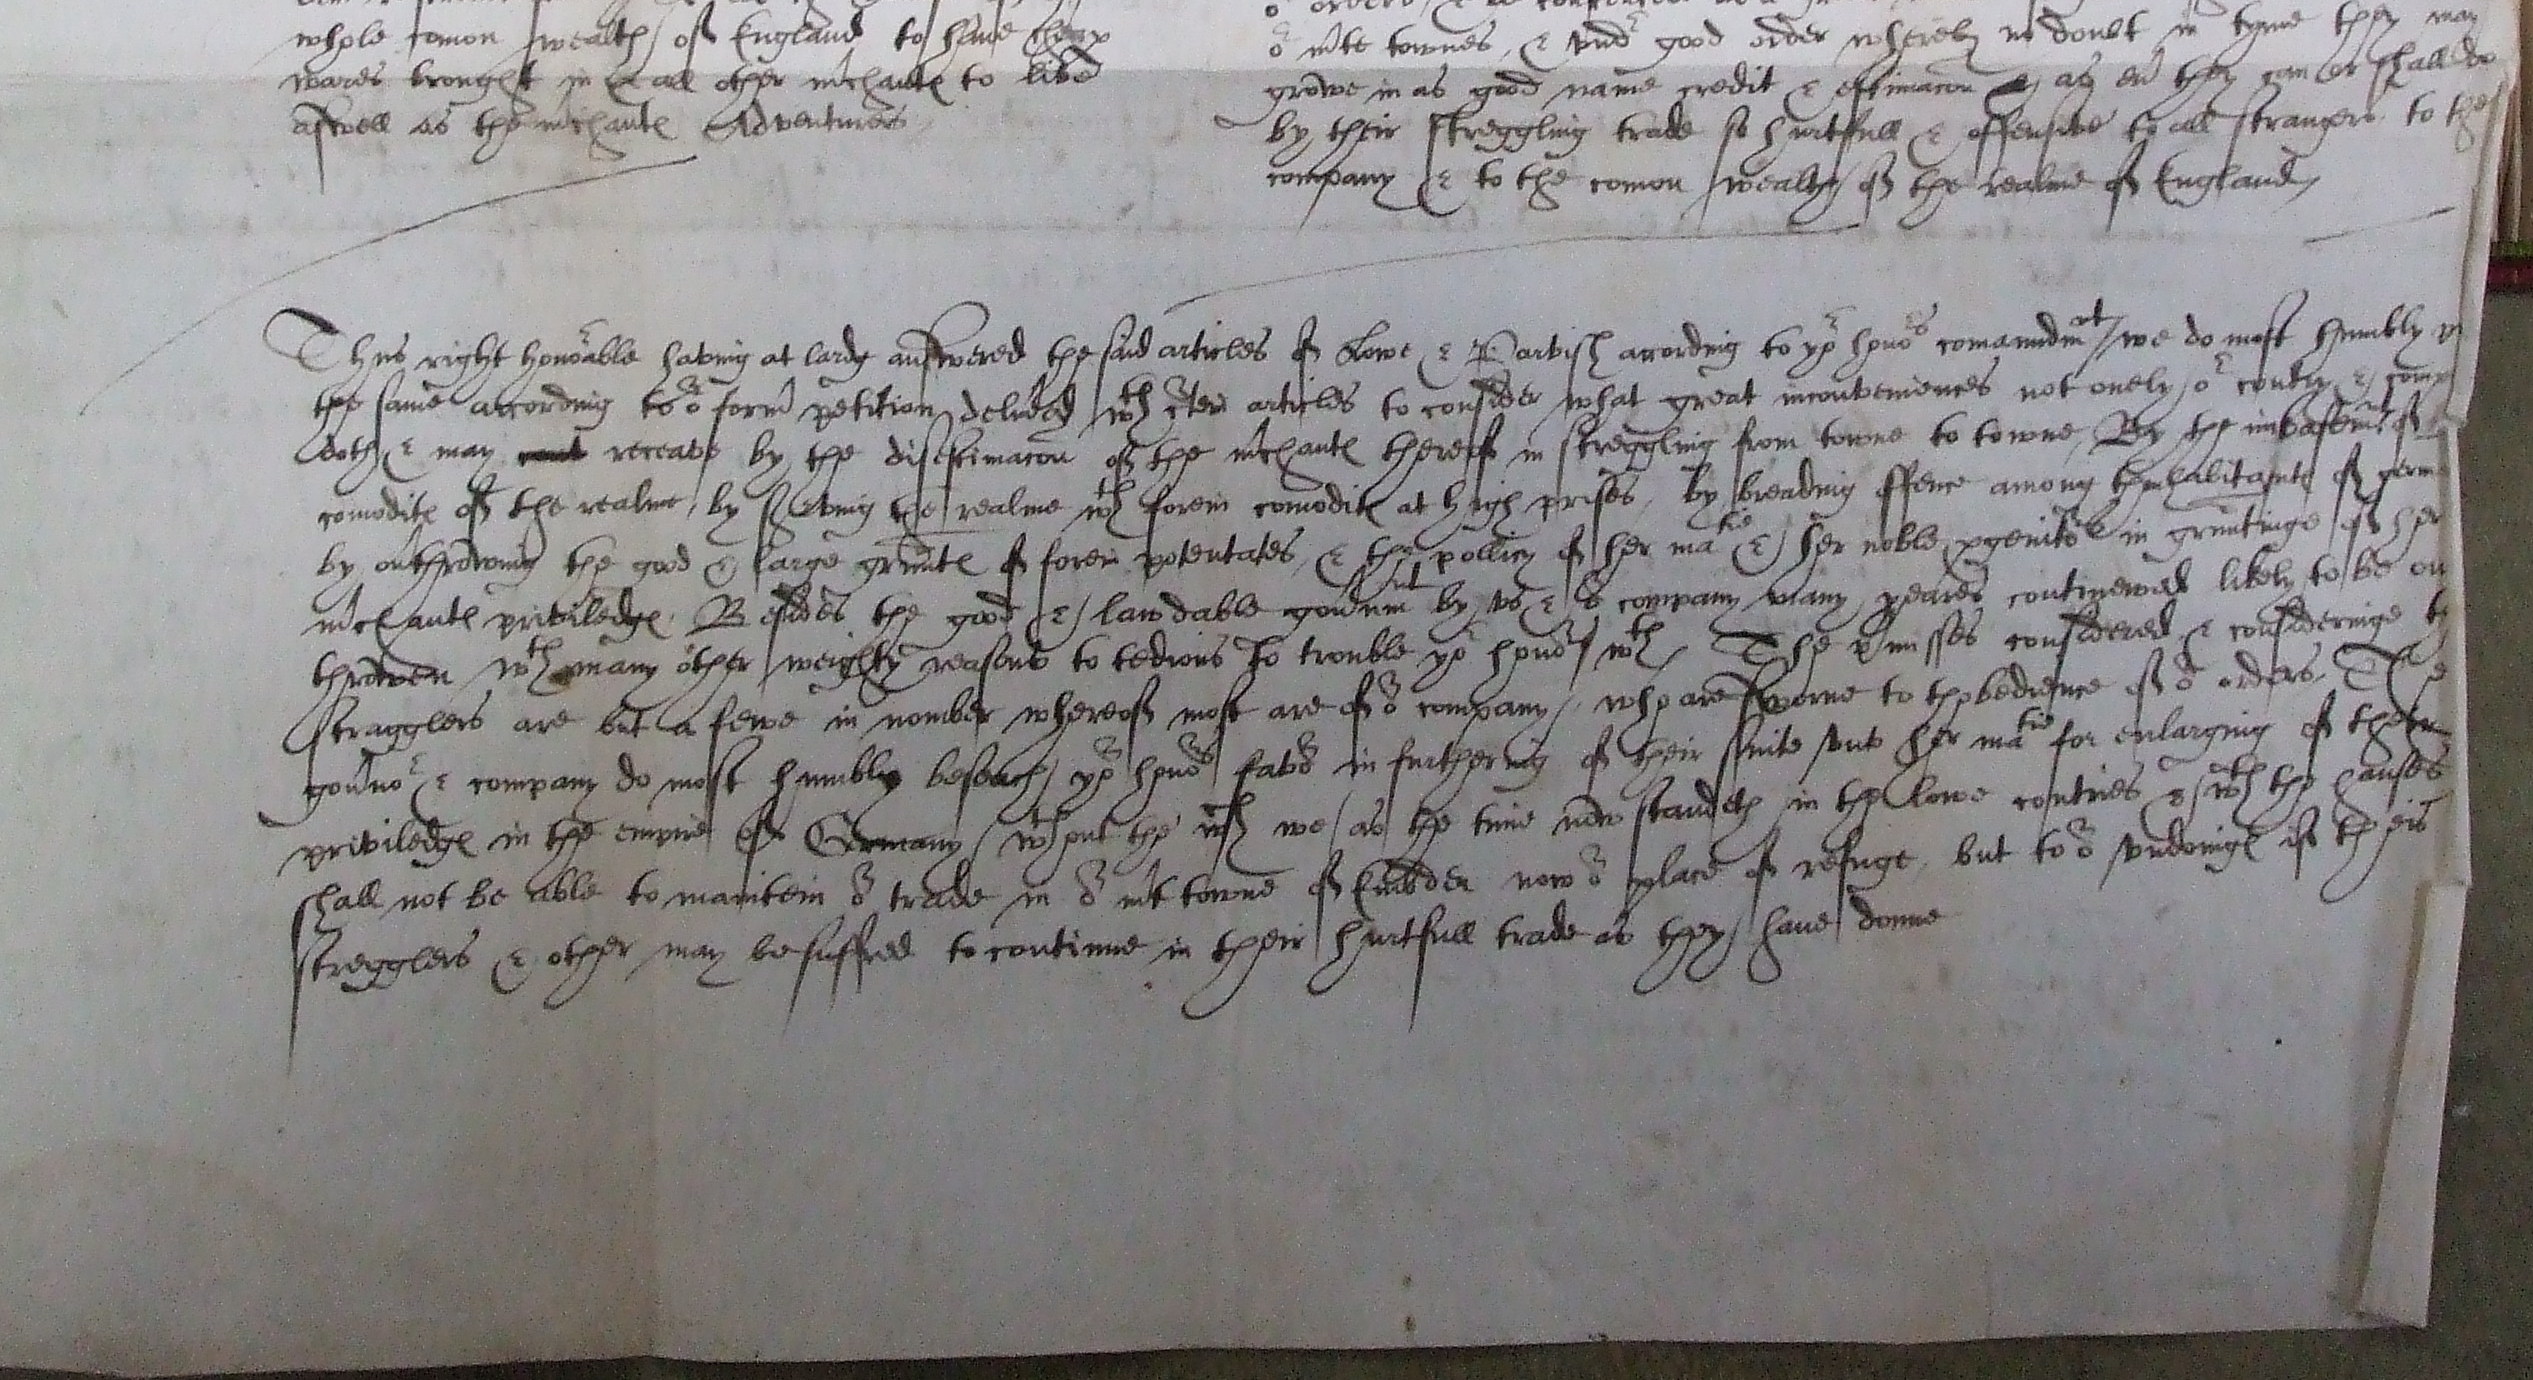 whole comon wealth of England to have cheap
wares brought in & all other m'chautes to live
aswell as the m'chautes Adventurers
oʳ m'te townes, & undʳ good order whereby no doubt in tyme they may
growe in as good name credit & estimacon as eu' they can or shall do
by their streggling trade so hurtfull & offensive to all strangers to the
company & to the comon wealth of the realme of England
Thus right honoʳable having at lardg answered the said articles of Lowe & Parvish according to yoʳ honoʳs comaundmᵉⁿᵗ we do most humbly
the same according to oʳ form' petition delivᵉed wᵗʰ articles to consider what great inconveniences not onely oʳ contry & comp
doth & may receave by the disestimacon of the m'chautes thereof in streggling from towne to towne, By the imbasemᵉⁿᵗ of
comodites of the realme, by serving the realme wᵗʰ forein comodites at high prises, by breading offence among thinhabitantes of germ
by ou'throwing the good & large grauntes of forein potentates, & the pollicy of her maᵗⁱᵉ & her noble pgenitoʳs in grauntinge of her
m'chautes priviledges. Besides the good & laudable gou'nmᵉⁿᵗ by us & oʳ company many yeares contynewed likely to be ou'
throwen wᵗʰ many other weighty reasons to tedious to trouble yoʳ honoʳs wᵗʰ. The p'misses considered & consideringe th
stragglers are but a fewe in nomber whereof most are of oʳ company, who are sworne to thobedience of oʳ orders. The
gou'noʳ & company do most humbly beseach yoʳ honoʳs favoʳ in furthering of their suite unto her maᵗⁱᵉ for enlarging of their
priviledges in the empire of Germany wᵗʰout the wᶜʰ we as the time now standeth in the lowe contries & wᵗʰ the hanses
shall not be able to maintein oʳ trade in oʳ m't towne of Embden now oʳ place of refuge, but to oʳ undoinges if theis
stregglers & other may be suffred to continue in their hurtfull trade as they have donne